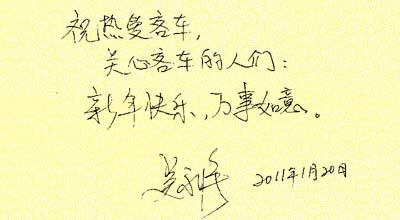 祝热爱客车，
关心客车的人们：
新年快乐，万事如意。
2011年1月20日